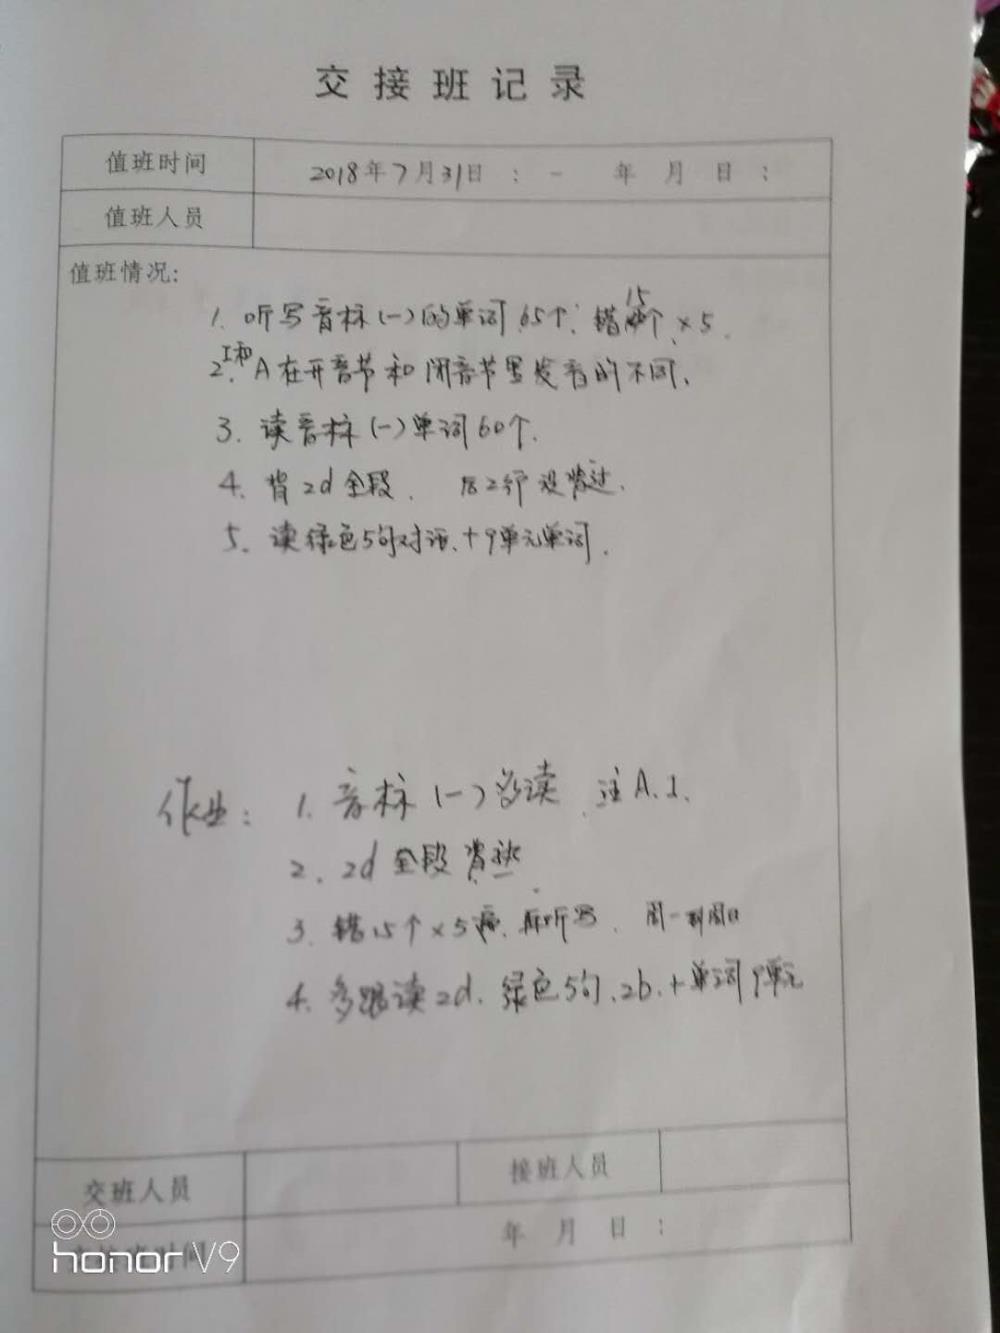 交接班记录
值班时间 2018年7月31日 : - 年 月 日 :
值班人员
值班情况:
1. 听写音标(一)的单词65个; 错15个×5.
2. I和A在开音节和闭音节里发音的不同、
3. 读音标(一)单词60个.
4. 背2d全段. 后2行没背过.
5. 读绿色5句对话、+9单元单词.
作业: 1. 音标(一)多读 注A.I.
2. 2d全段背熟
3. 错15个×5遍、再听写. 周一到周日
4. 多跟读2d、绿色5句、2b、+单词9单元
交班人员 接班人员
时间 年 月 日 :
honor V9